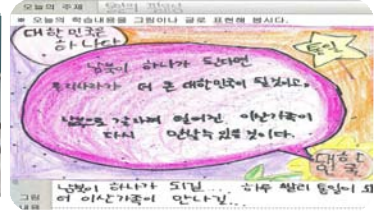 오늘의 주제
※ 오늘의 학습내용을 그림이나 글로 표현해 봅시다.
대한민국은
하나다
통일
남북이 하나가 된다면
우리나라가 더 큰 대한민국이 될것이고,
남북으로 갈라져 떨어진 이산가족이
다시 만날수 있을 것이다.
대한
민국
그림
내용
남북이 하나가 되길... 하루 빨리 통일이 되
어 이산가족이 만나길...